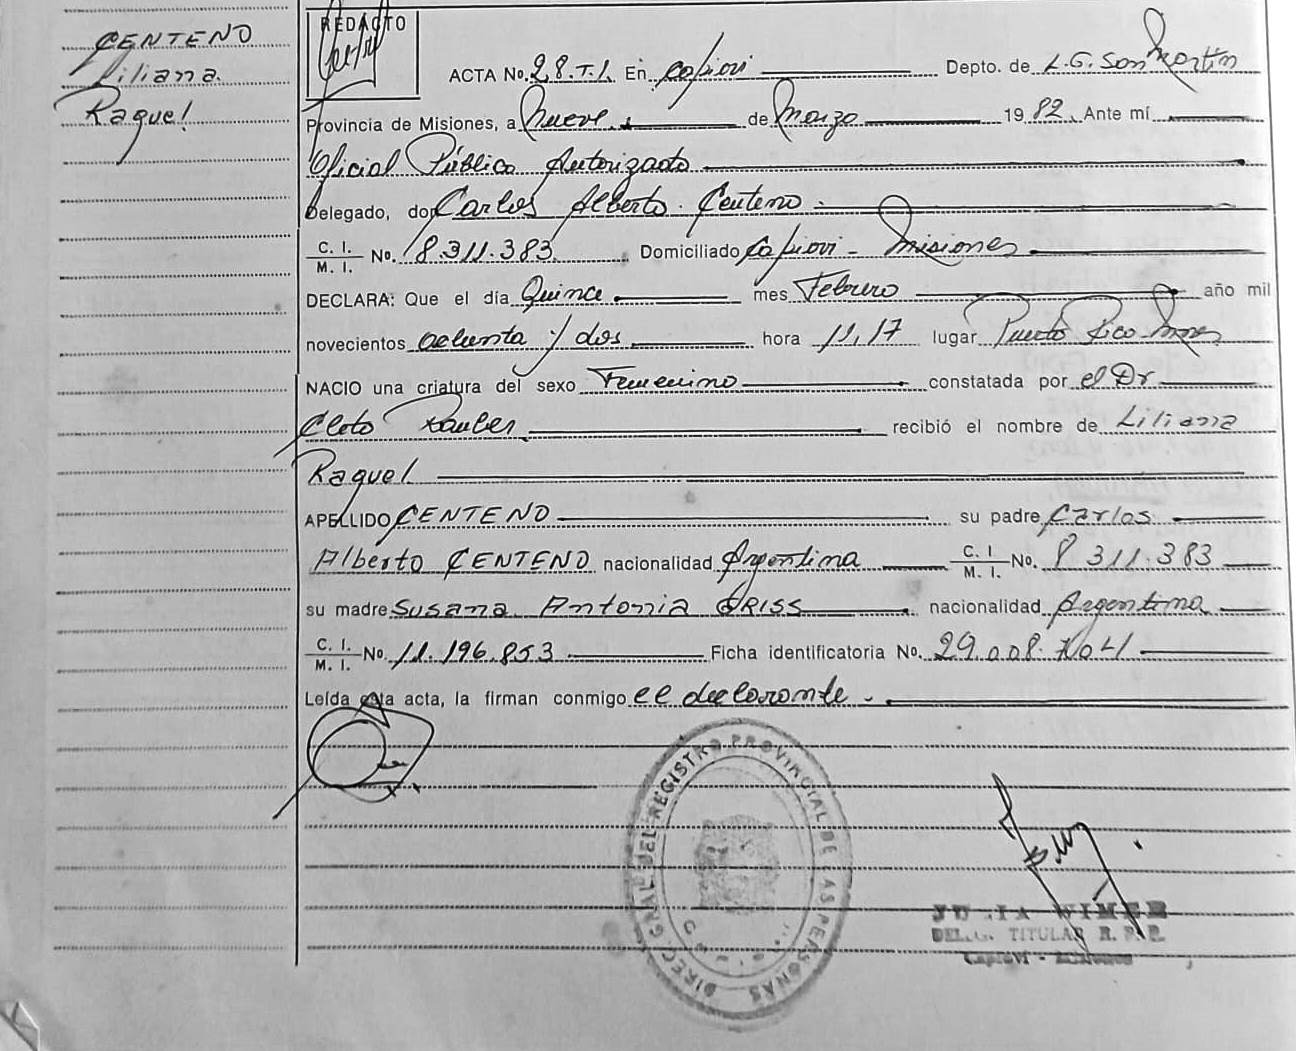 CENTENO
Liliana
Raquel
REDACTO
ACTA No. 28.T.I. En Capiovi Depto. de L.G. San Martín
Provincia de Misiones, a Nueve de Marzo 1982. Ante mí
Oficial Público Autorizado
Delegado, don Carlos Alberto Centeno
C. I.
M. I. No. 8.311.383 Domiciliado Capiovi - Misiones
DECLARA: Que el día Quince mes Febrero año mil
novecientos ochenta y dos hora 11,17 lugar Puerto Rico Mnes
NACIO una criatura del sexo Femenino constatada por el Dr
Cleto Rauber recibió el nombre de Liliana
Raquel
APELLIDO CENTENO su padre Carlos
Alberto CENTENO nacionalidad Argentina C. I.
M. I. No. 8 311.383
su madre Susana Antonia GRISS nacionalidad Argentina
C. I.
M. I. No. 11.196.853 Ficha identificatoria No. 29.008.
Leída esta acta, la firman conmigo el declarante -
DIREC. GRAL. DEL REGISTRO PROVINCIAL DE LAS PERSONAS
JULIA WIMER
DELEG. TITULAR R. P. P.
Capioví - Misiones